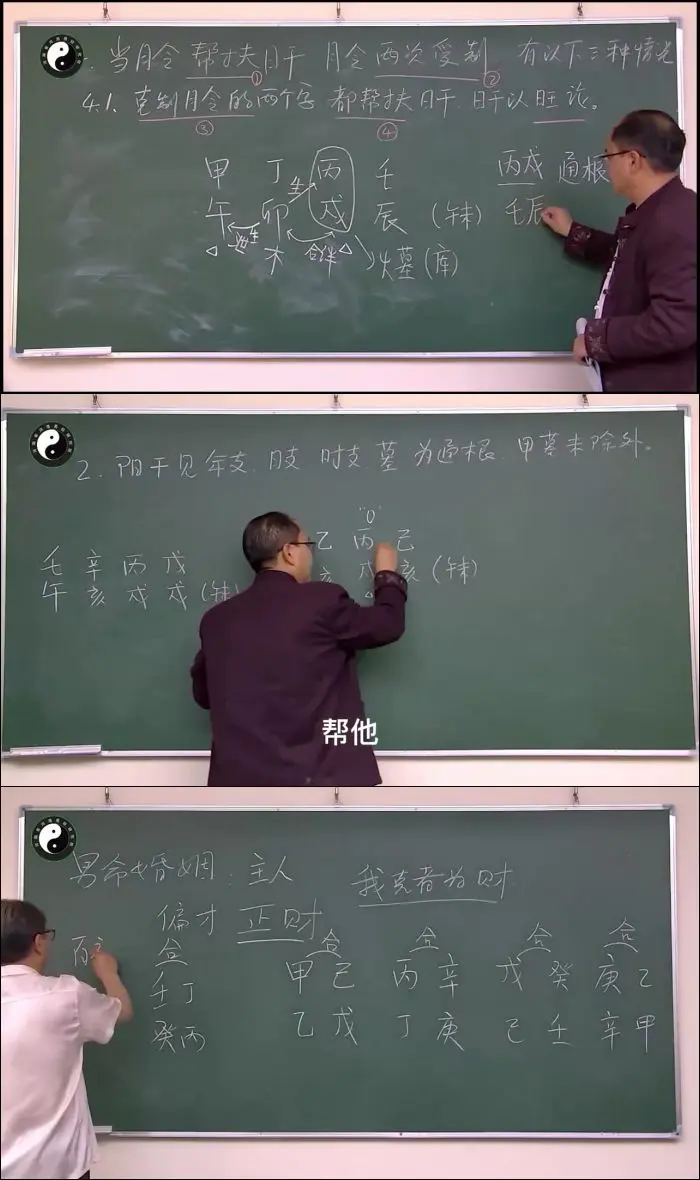 当月令帮扶日干 月令两次受制 有以下三种情况
① ②
4.1、克制月令的两个字都帮扶日干 日干以旺论。
③ ④
甲 丁 丙 壬
生
午 卯 戌 辰 (午未)
生 合绊
木 火墓(库)
丙戌 通根
壬辰
2. 阳干见年支、月支、时支、墓为通根 甲墓未除外。
"0"
壬 辛 丙 戊
午 亥 戌 戌
乙 丙 己
亥 戌 亥 (午未)
帮他
男命婚姻：主人
我克者为财
偏才 正财
合
壬丁
癸丙
合 合 合 合
甲己 丙辛 戊癸 庚乙
乙戊 丁庚 己壬 辛甲